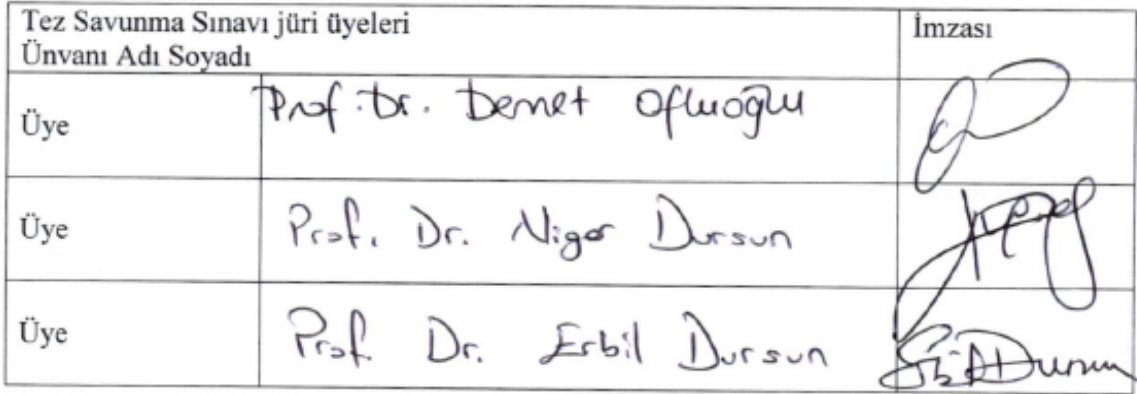 Tez Savunma Sınavı jüri üyeleri
Ünvanı Adı Soyadı
İmzası
Üye
Prof. Dr. Demet Ofluoğlu
Üye
Prof. Dr. Nigar Dursun
Üye
Prof. Dr. Erbil Dursun